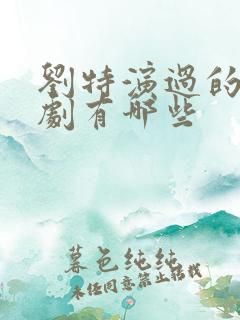 劉特演過的
劇有哪些
暮色纯纯
未经同意禁止转载